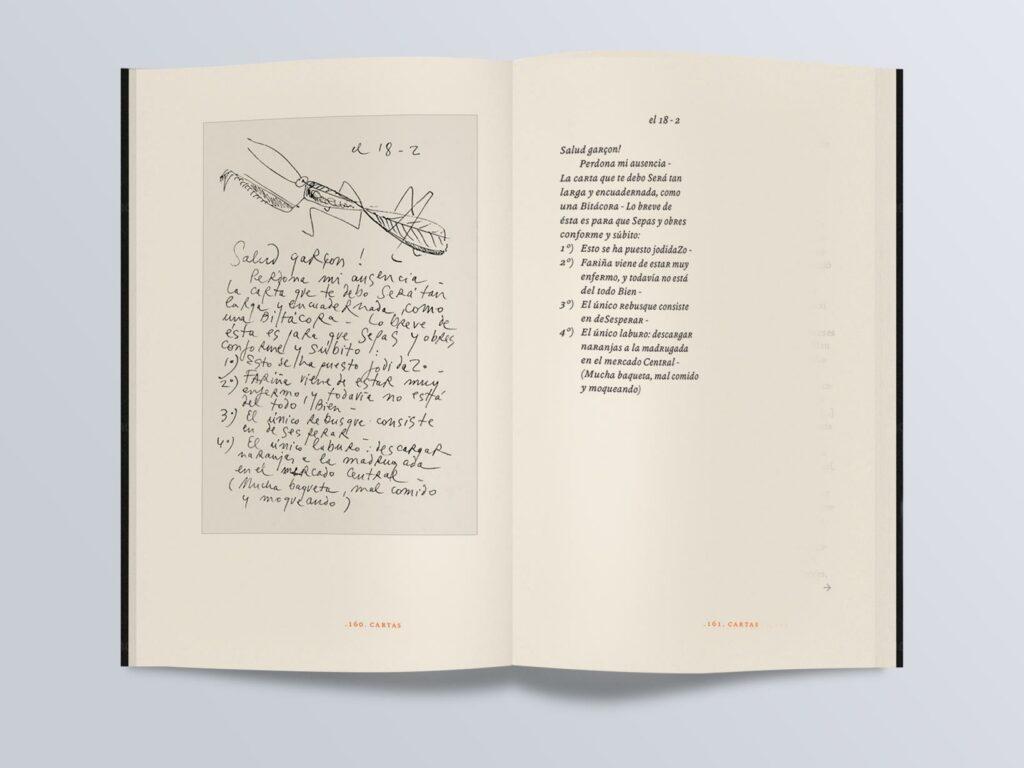 el 18 - 2
Salud garçon !
Perdona mi ausencia -
La carta que te debo Será tan
larga y encuadernada, como
una Bitácora - Lo breve de
ésta es para que Sepas y obres
conforme y súbito :
1º) Esto se ha puesto jodidaZo -
2º) FARiña viene de estar muy
enfermo, y todavía no está
del todo Bien -
3º) El único rebusque consiste
en deSesperar -
4º) El único laburo : descargar
naranjas a la madrugada
en el mercado Central -
(Mucha baqueta, mal comido
y moqueando)
.160. CARTAS
el 18 - 2
Salud gaRçon!
Perdona mi ausencia -
La caRta que te debo SeRá tan
laRga y encuadeRnada, como
una Bitácora - Lo bReve de
ésta es para que Sepas y obRes
confoRme y súbito:
1º) Esto se ha puesto jodidaZo -
2º) FaRiña viene de estaR muy
enfeRmo, y todavía no está
del todo Bien -
3º) El único Rebusque consiste
en deSespeRaR -
4º) El único labuRo: descaRgaR
naRanjas a la madRugada
en el meRcado CentRal -
(Mucha baqueta, mal comido
y moqueando)
→
.161. CARTAS